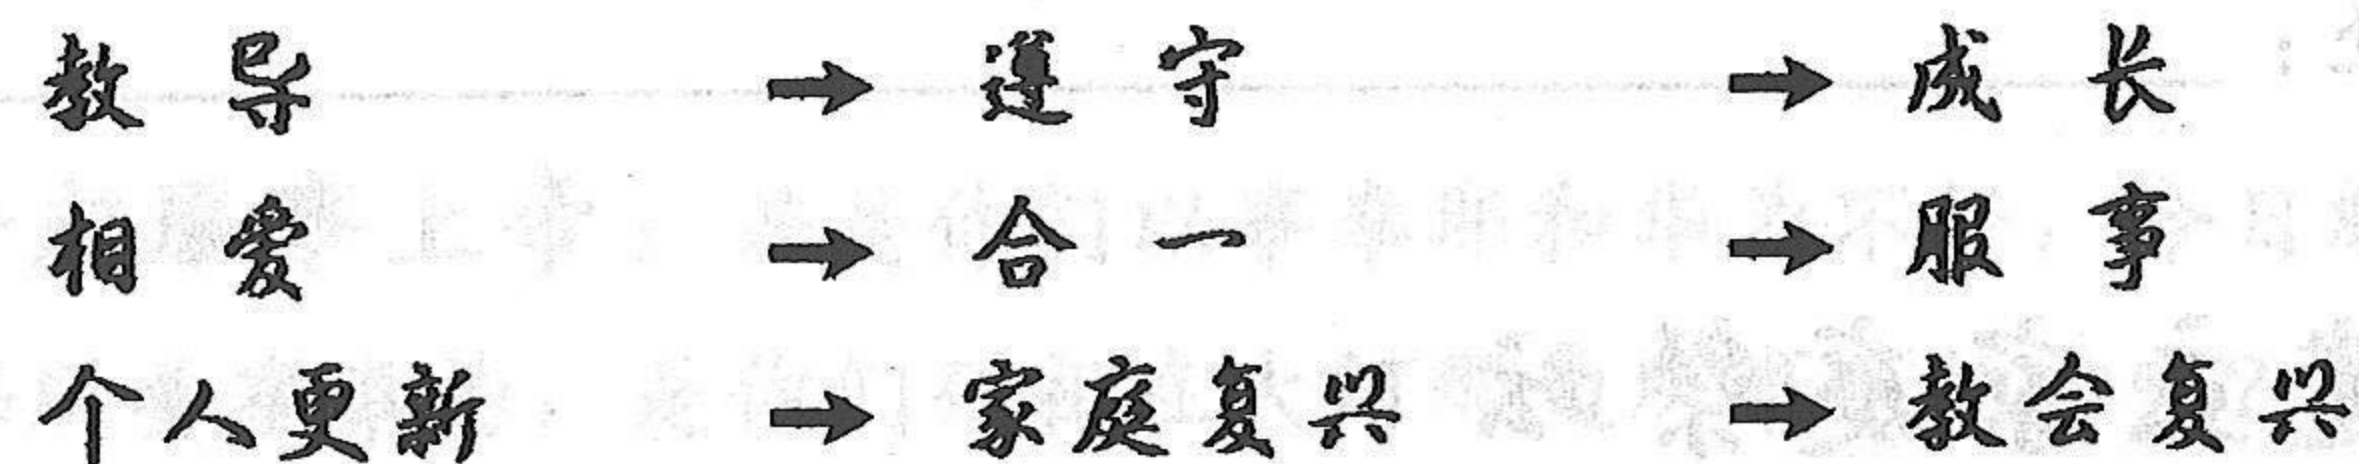 教导 → 遵守 → 成长
相爱 → 合一 → 服事
个人更新 → 家庭复兴 → 教会复兴